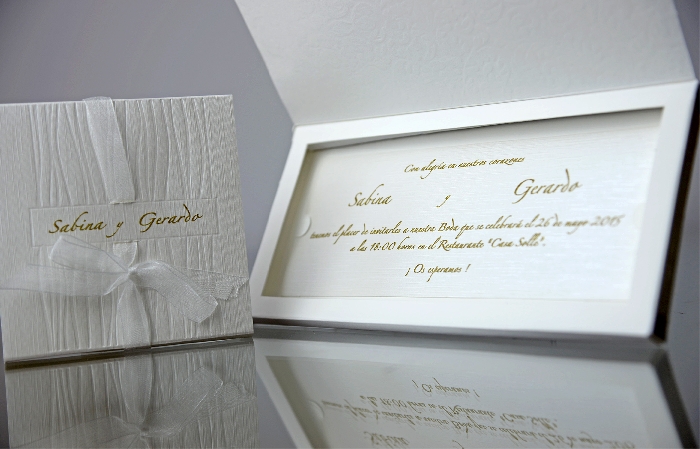 Sabina y Gerardo
Con alegría en nuestros corazones
Sabina y Gerardo
tenemos el placer de invitarles a nuestra Boda que se celebrará el 26 de mayo 2015
a las 18:00 horas en el Restaurante "Casa Sollo".
¡ Os esperamos !